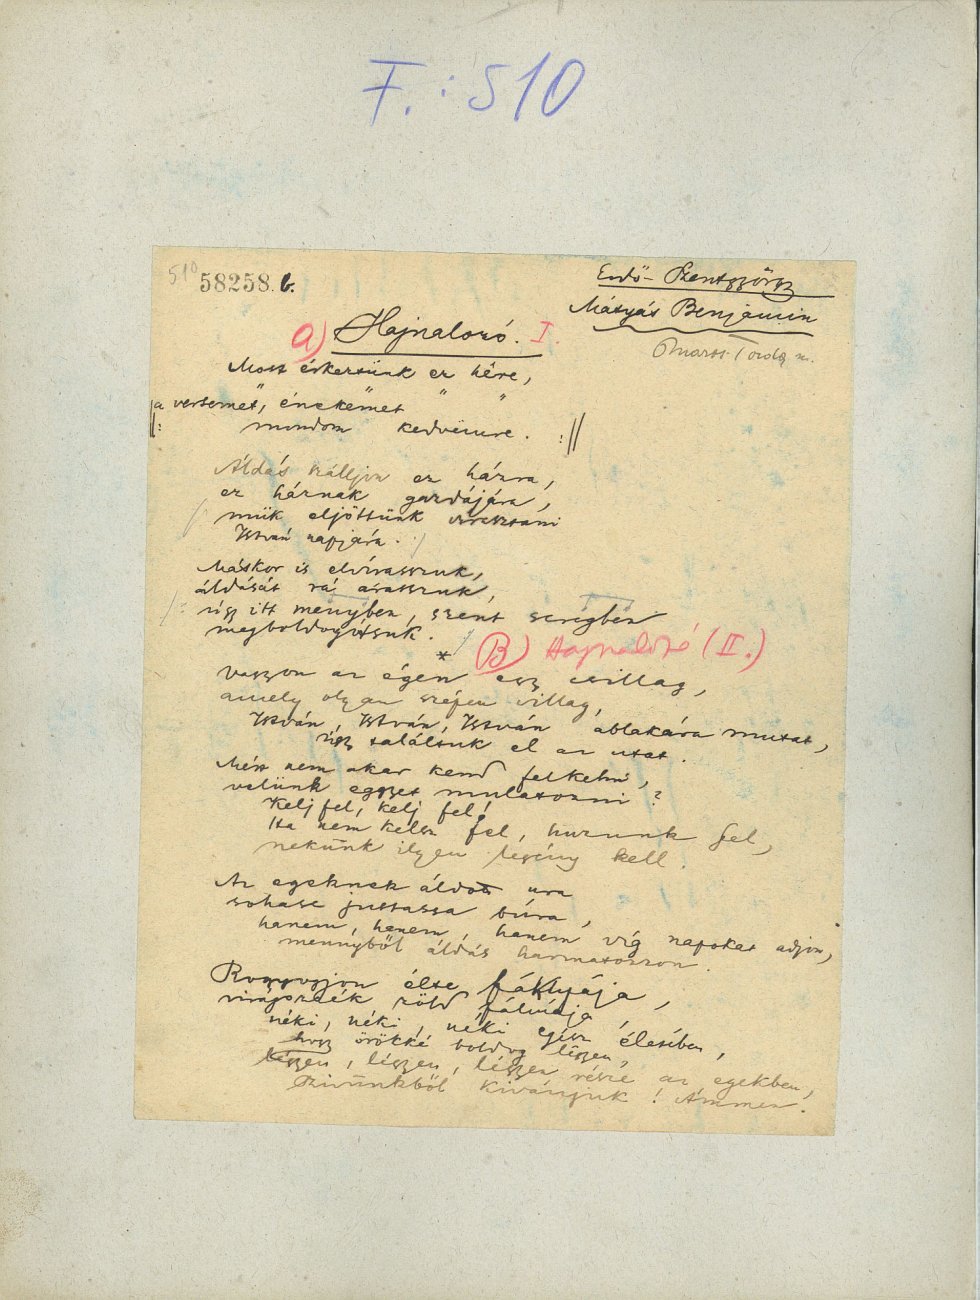 F.: 510
510
58258. b.
Erdő-Szentgyörgy
Mátyás Benjámin
Maros-Torda m.
A) Hajnalozó. I.
Most érkeztünk ez hëre,
a versemet, énekëmet " "
||: mondom kedvëire. :||
Áldás szálljon ez házra,
ez háznak gazdájára,
mük eljöttünk vireszteni
István napjára.
Máskor is elvírasszuk,
áldását rá árasszuk,
úgy itt menyben, szent seregben
megboldogitsuk.
*
B) Hajnalozó (II.)
Vagyon az égën egy csillag,
amely olyan szépen villag,
István, István, István ablakára mutat,
úgy találtuk el az utat.
Mért nem akar kend felkelni,
velünk egyget mulatozni?
Kelj fel, kelj fel!
Ha nem kelsz fel, huzunk fel,
nekünk ilyen legény kell
Az egeknek áldott ura
sohase juttassa búra,
hanem, hanem, hanem víg napokat adjon,
mennyből áldás harmatozzon.
Ragyogjon élte fáklyája,
virágozzék zöld fálmája,
néki, néki, néki egész életiben,
hogy örökké boldog légyen,
légyen, légyen, légyen része az egekben,
Szivünkből kivánjuk! Ámmen.